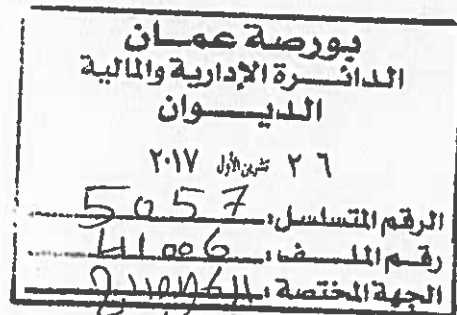 بورصة عمان
الدائرة الإدارية والمالية
الديوان
٢٦ تشرين الأول ٢٠١٧
الرقم المتسلسل: 5057
رقم الملف: 41006
الجهة المختصة: